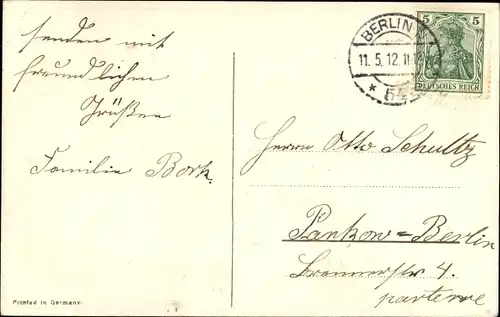 senden mit
freundlichen
Grüßen
Familie Bork.
Printed in Germany.
BERLIN
11.5.12.11
* 54
5 5
DEUTSCHES REICH
Herrn Otto Schultz
Pankow=Berlin
Bremerstr 4.
parterre